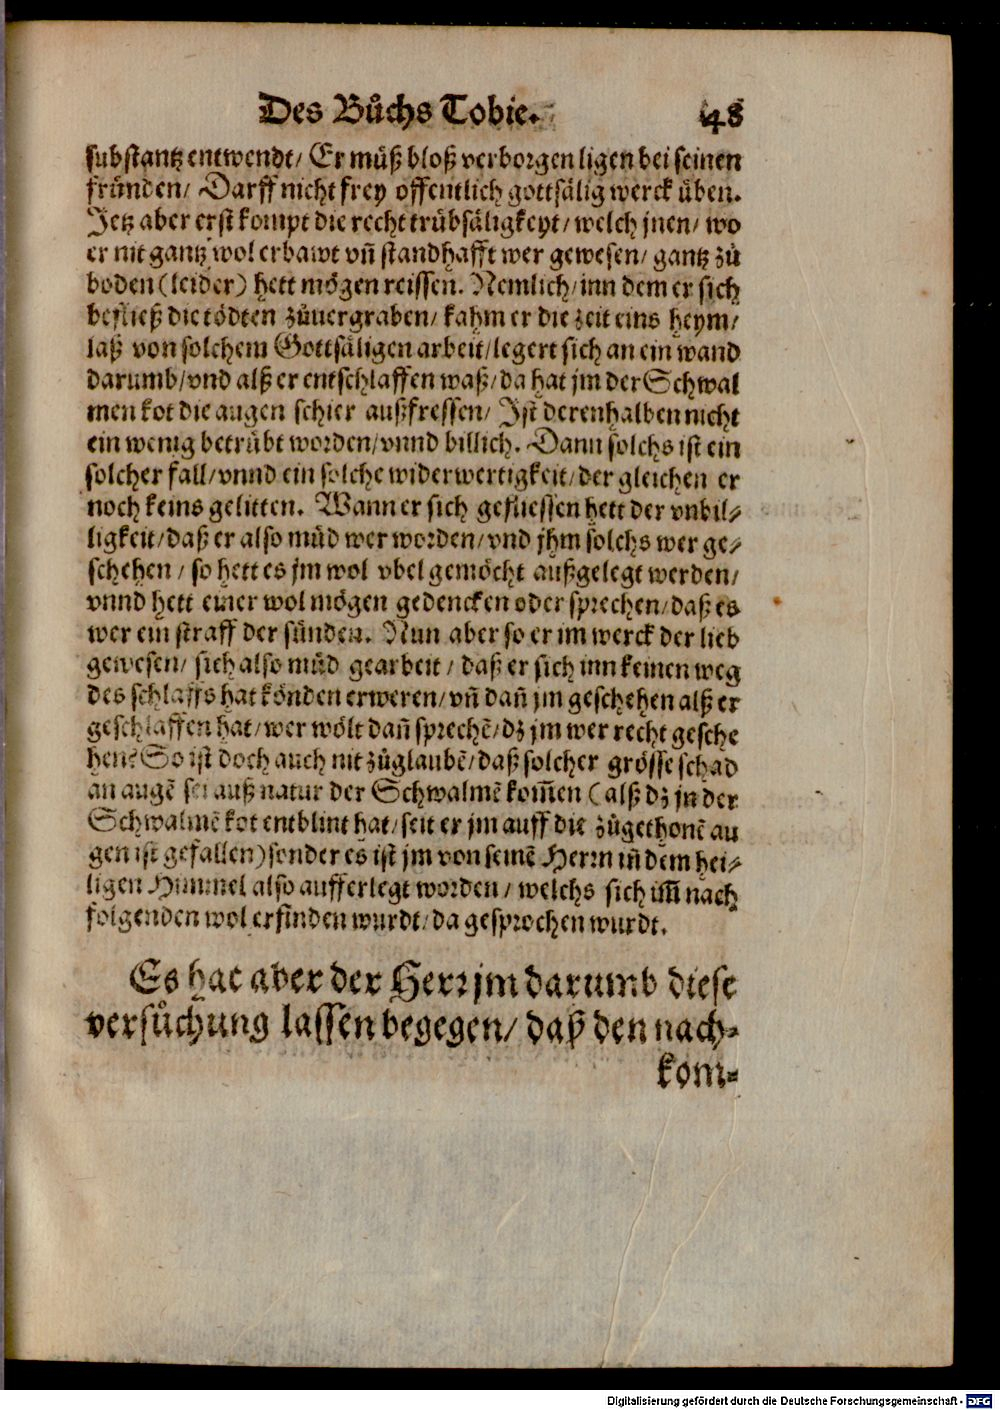 Des Bůchs Tobie. 48
substantz entwendt/ Er müß bloß verborgen ligen bei seinen
fründen/ Darff nicht frey offentlich gottsälig werck üben.
Jetz aber erst kompt die recht trübsäligkeyt/ welch jnen/ wo
er nit gantz wol erbawt vñ standhafft wer gewesen/ gantz zů
boden (leider) hett mögen reissen. Nemlich/ inn dem er sich
befließ die tödten zůuergraben/ kahm er die zeit eins heym/
laß von solchem Gottsäligen arbeit/ legert sich an ein wand
darumb/ vnd alß er entschlaffen waß/ da hat jm der Schwal
men kot die augen schier außfressen/ Ist derenhalben nicht
ein wenig betrübt worden/ vnnd billich. Dann solchs ist ein
solcher fall/ vnnd ein solche widerwertigkeit/ der gleichen er
noch keins gelitten. Wann er sich gefliessen hett der vnbil⸗
ligkeit/ daß er also müd wer worden/ vnd jhm solchs wer ge⸗
schehen/ so hett es jm wol vbel gemöcht außgelegt werden/
vnnd hett einer wol mögen gedencken oder sprechen/ daß es
wer ein straff der sünden. Nun aber so er im werck der lieb
gewesen/ sich also müd gearbeit/ daß er sich inn keinen weg
des schlaffs hat könden erweren/ vñ dañ jm geschehen alß er
geschlaffen hat/ wer wölt dañ sprechē/ dz jm wer recht gesche
hen? So ist doch auch nit zůglaubē/ daß solcher grösse schad
an augē sei auß natur der Schwalmē kom̃en (alß dz jn der
Schwalmē kot entblint hat/ seit er jm auff die zůgethonē au
gen ist gefallen) sonder es ist jm von seinē Herrn iñ dem hei⸗
ligen Himmel also aufferlegt worden/ welchs sich im̃ nach
folgenden wol erfinden wurdt/ da gesprochen wurdt.
Es hat aber der Herr jm darumb diese
versůchung lassen begegen/ daß den nach⸗
kom⸗
Digitalisierung gefördert durch die Deutsche Forschungsgemeinschaft - DFG